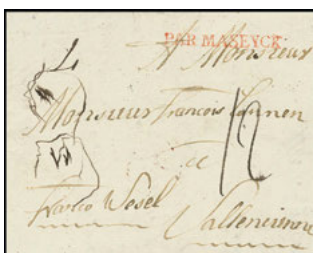 PAR MASEYCK
A Monsieur
Monsieur Francois
a
Franco Wesel
Vallencienne